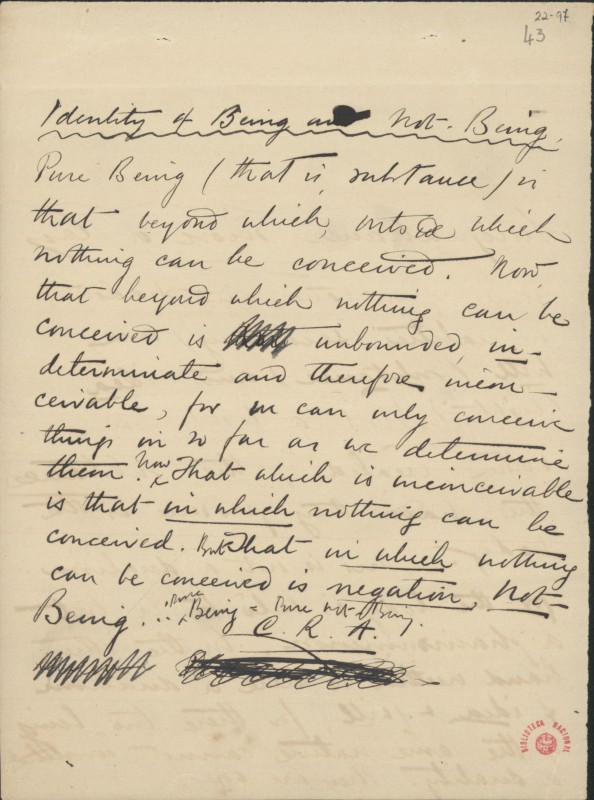 22-97
43
Identity of Being and Not-Being.
Pure Being (that is, substance) is
that beyond which, outside which
nothing can be conceived. Now,
that beyond which nothing can be
conceived is unbounded, in-
determinate and therefore incon-
ceivable, for we can only conceive
things in so far as we determine
them. Now That which is inconceivable
is that in which nothing can be
conceived. But That in which nothing
can be conceived is negation, Not-
Being... ∴ Pure Being = Pure not-Being.
C. R. A.
BIBLIOTECA NACIONAL